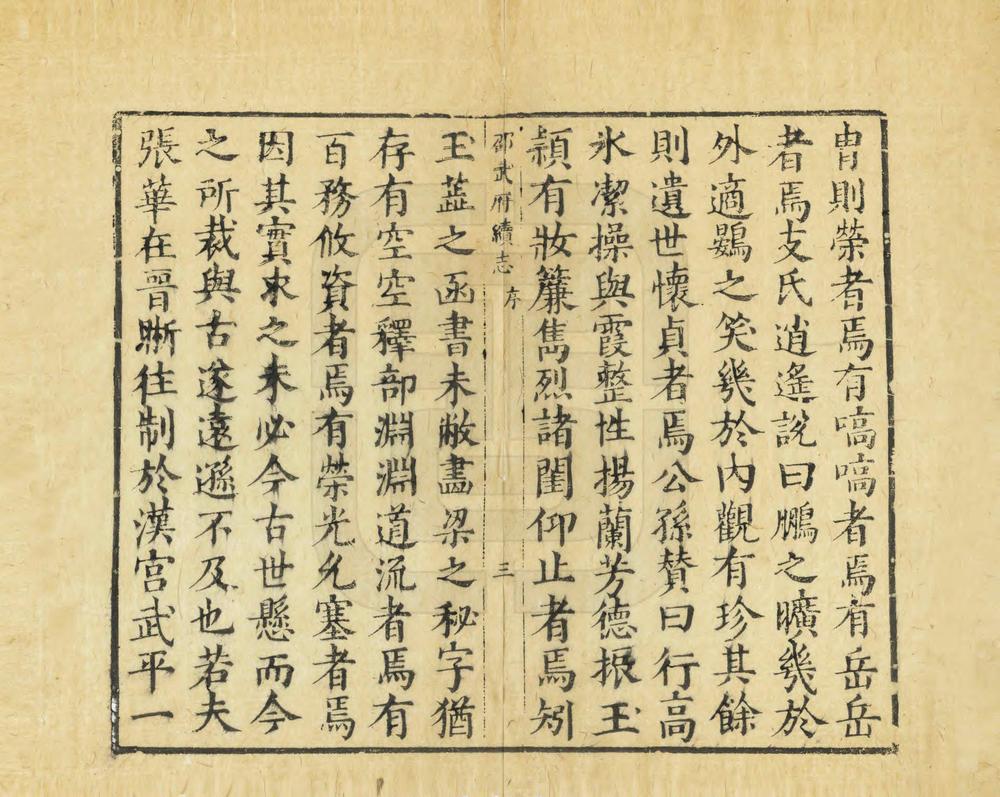 胄則榮者焉有嗃嗃者焉有岳岳
者焉支氏逍遙說曰鵬之曠幾於
外適鷃之笑幾於內觀有珍其餘
則遺世懷貞者焉公孫贊曰行高
氷潔操與霞整性揚蘭芳德振玉
頴有妝簾雋烈諸閨仰止者焉矧
邵武府續志 序 三
玉葢之函書未敝畵梁之秘字猶
存有空空釋部淵淵道流者焉有
百務攸資者焉有榮光允塞者焉
因其實求之未必今古世懸而今
之所裁與古遂遠遜不及也若夫
張華在晉晣往制於漢宫武平一